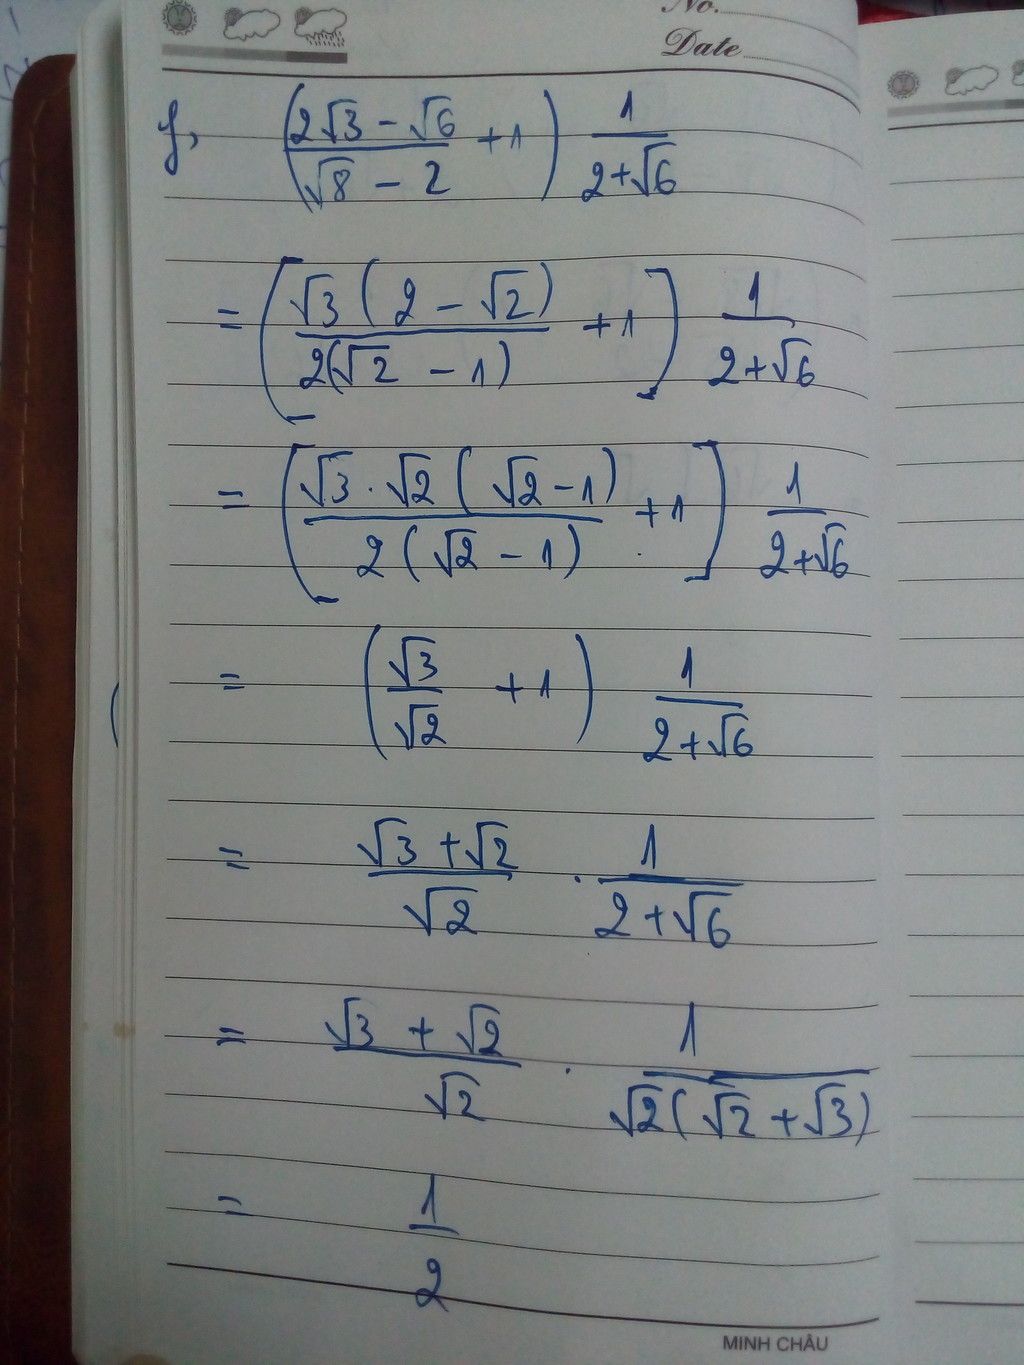 No.
Date
f, ( (2√3 - √6)/(√8 - 2) + 1 ) 1/(2+√6)
= [ √3 ( 2 - √2 )/2(√2 - 1) + 1 ] 1/(2+√6)
= [ √3 . √2 ( √2 - 1 )/2 ( √2 - 1 ) + 1 ] 1/(2+√6)
= ( √3/√2 + 1 ) 1/(2+√6)
= (√3 + √2)/√2 . 1/(2+√6)
= (√3 + √2)/√2 . 1/√2(√2 + √3)
= 1/2
MINH CHÂU